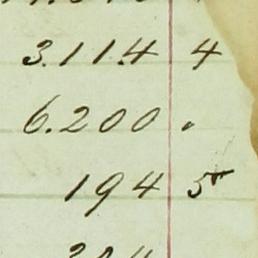 3.114 4
6.200 .
194 5